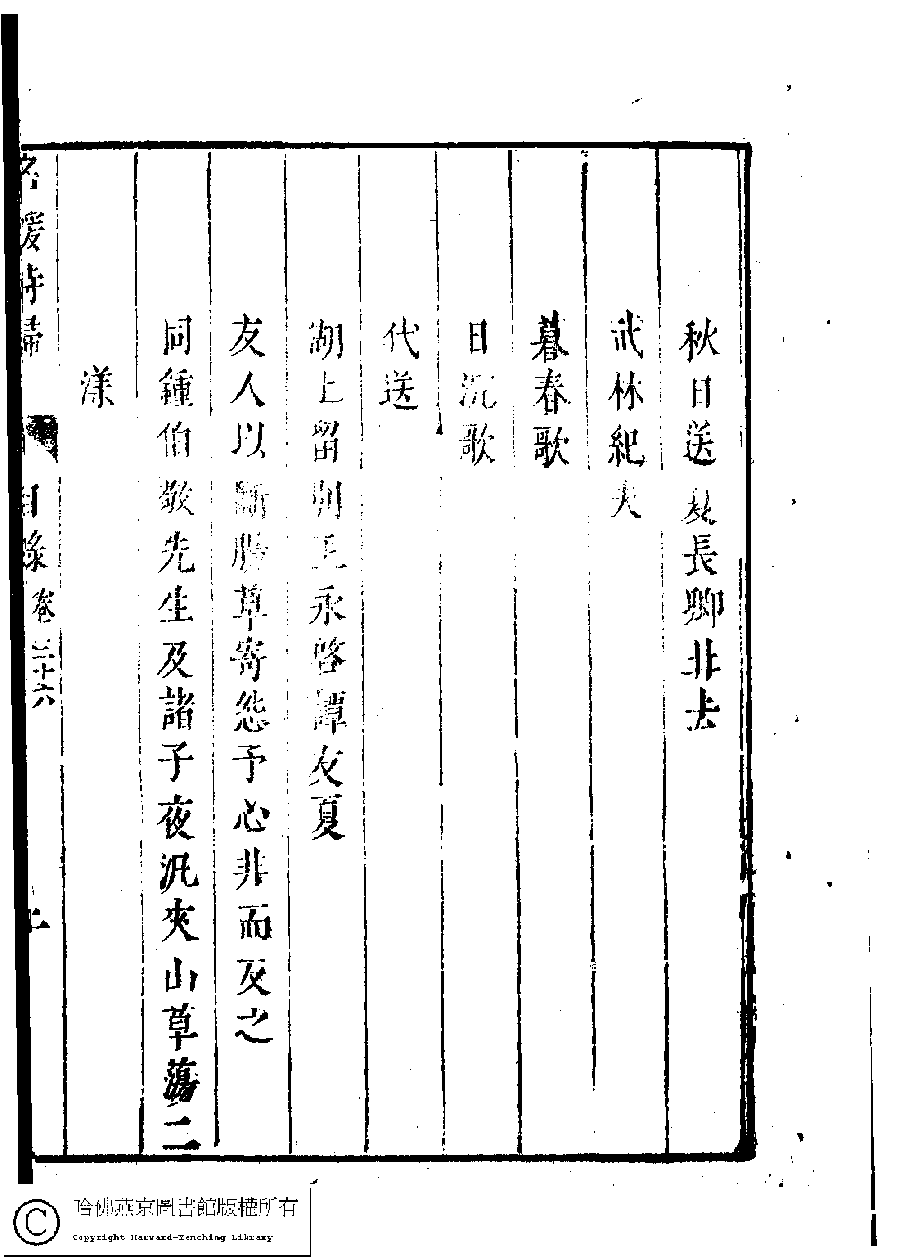 秋日送長卿北去
武林紀夫
暮春歌
日沉歌
代送
湖上留別王永啓譚友夏
友人以斷腸草寄怨予心非而反之
同鍾伯敬先生及諸子夜汎夾山草蕩二
漾
名媛詩歸
目錄 卷三十六
哈佛燕京圖書館版權所有
Copyright Harvard-Yenching Library